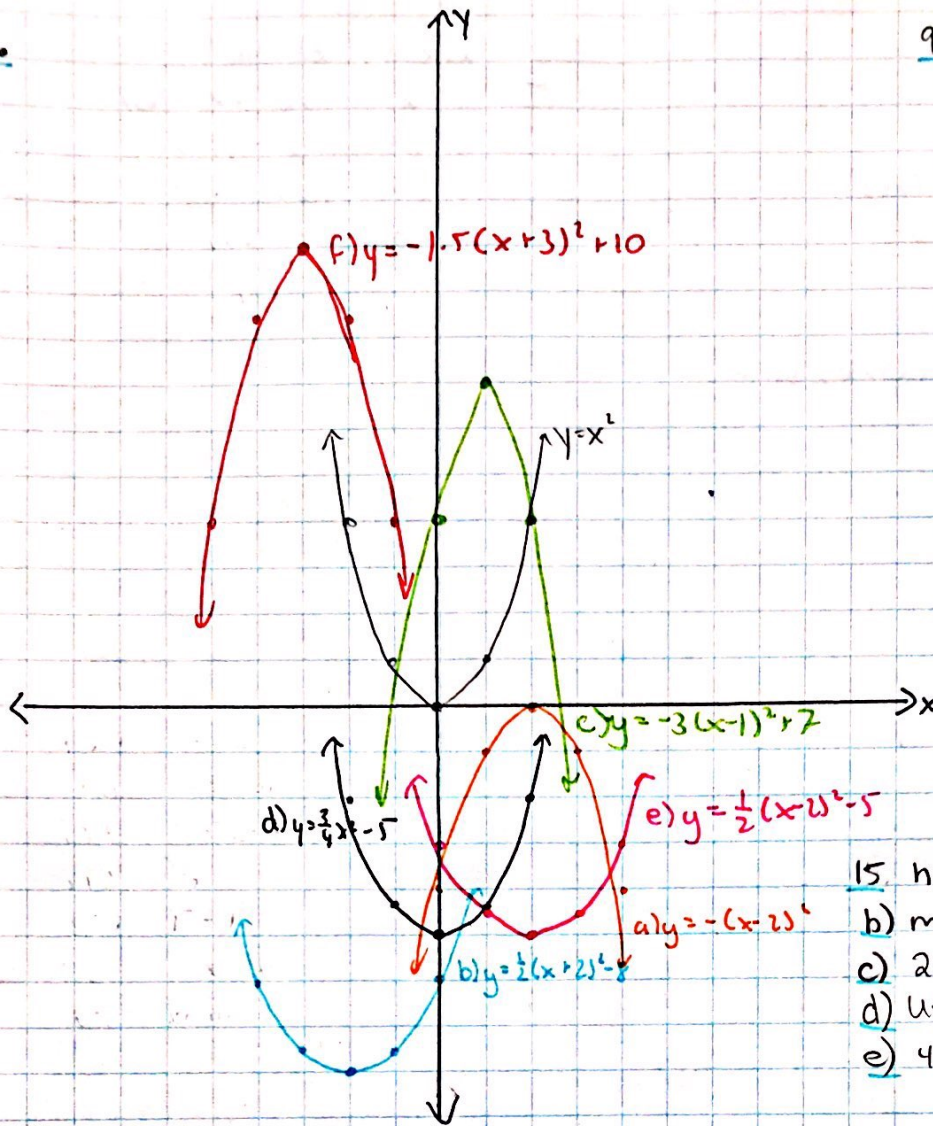 y
9
f) y = -1.5(x+3)² + 10
y=x²
x
c) y = -3(x-1)² + 7
d) y = ¾x² - 5
e) y = ½(x-2)² - 5
15. h
a) y = -(x-2)²
b) m
b) y = ½(x+2)² - 8
c) 2
d) u
e) 4